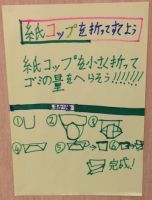 紙コップを折ってすてよう
紙コップを小さく折って
ゴミの量をへらそう!!!!!!!
① ② ③
④ ⑤ ⑥
完成!